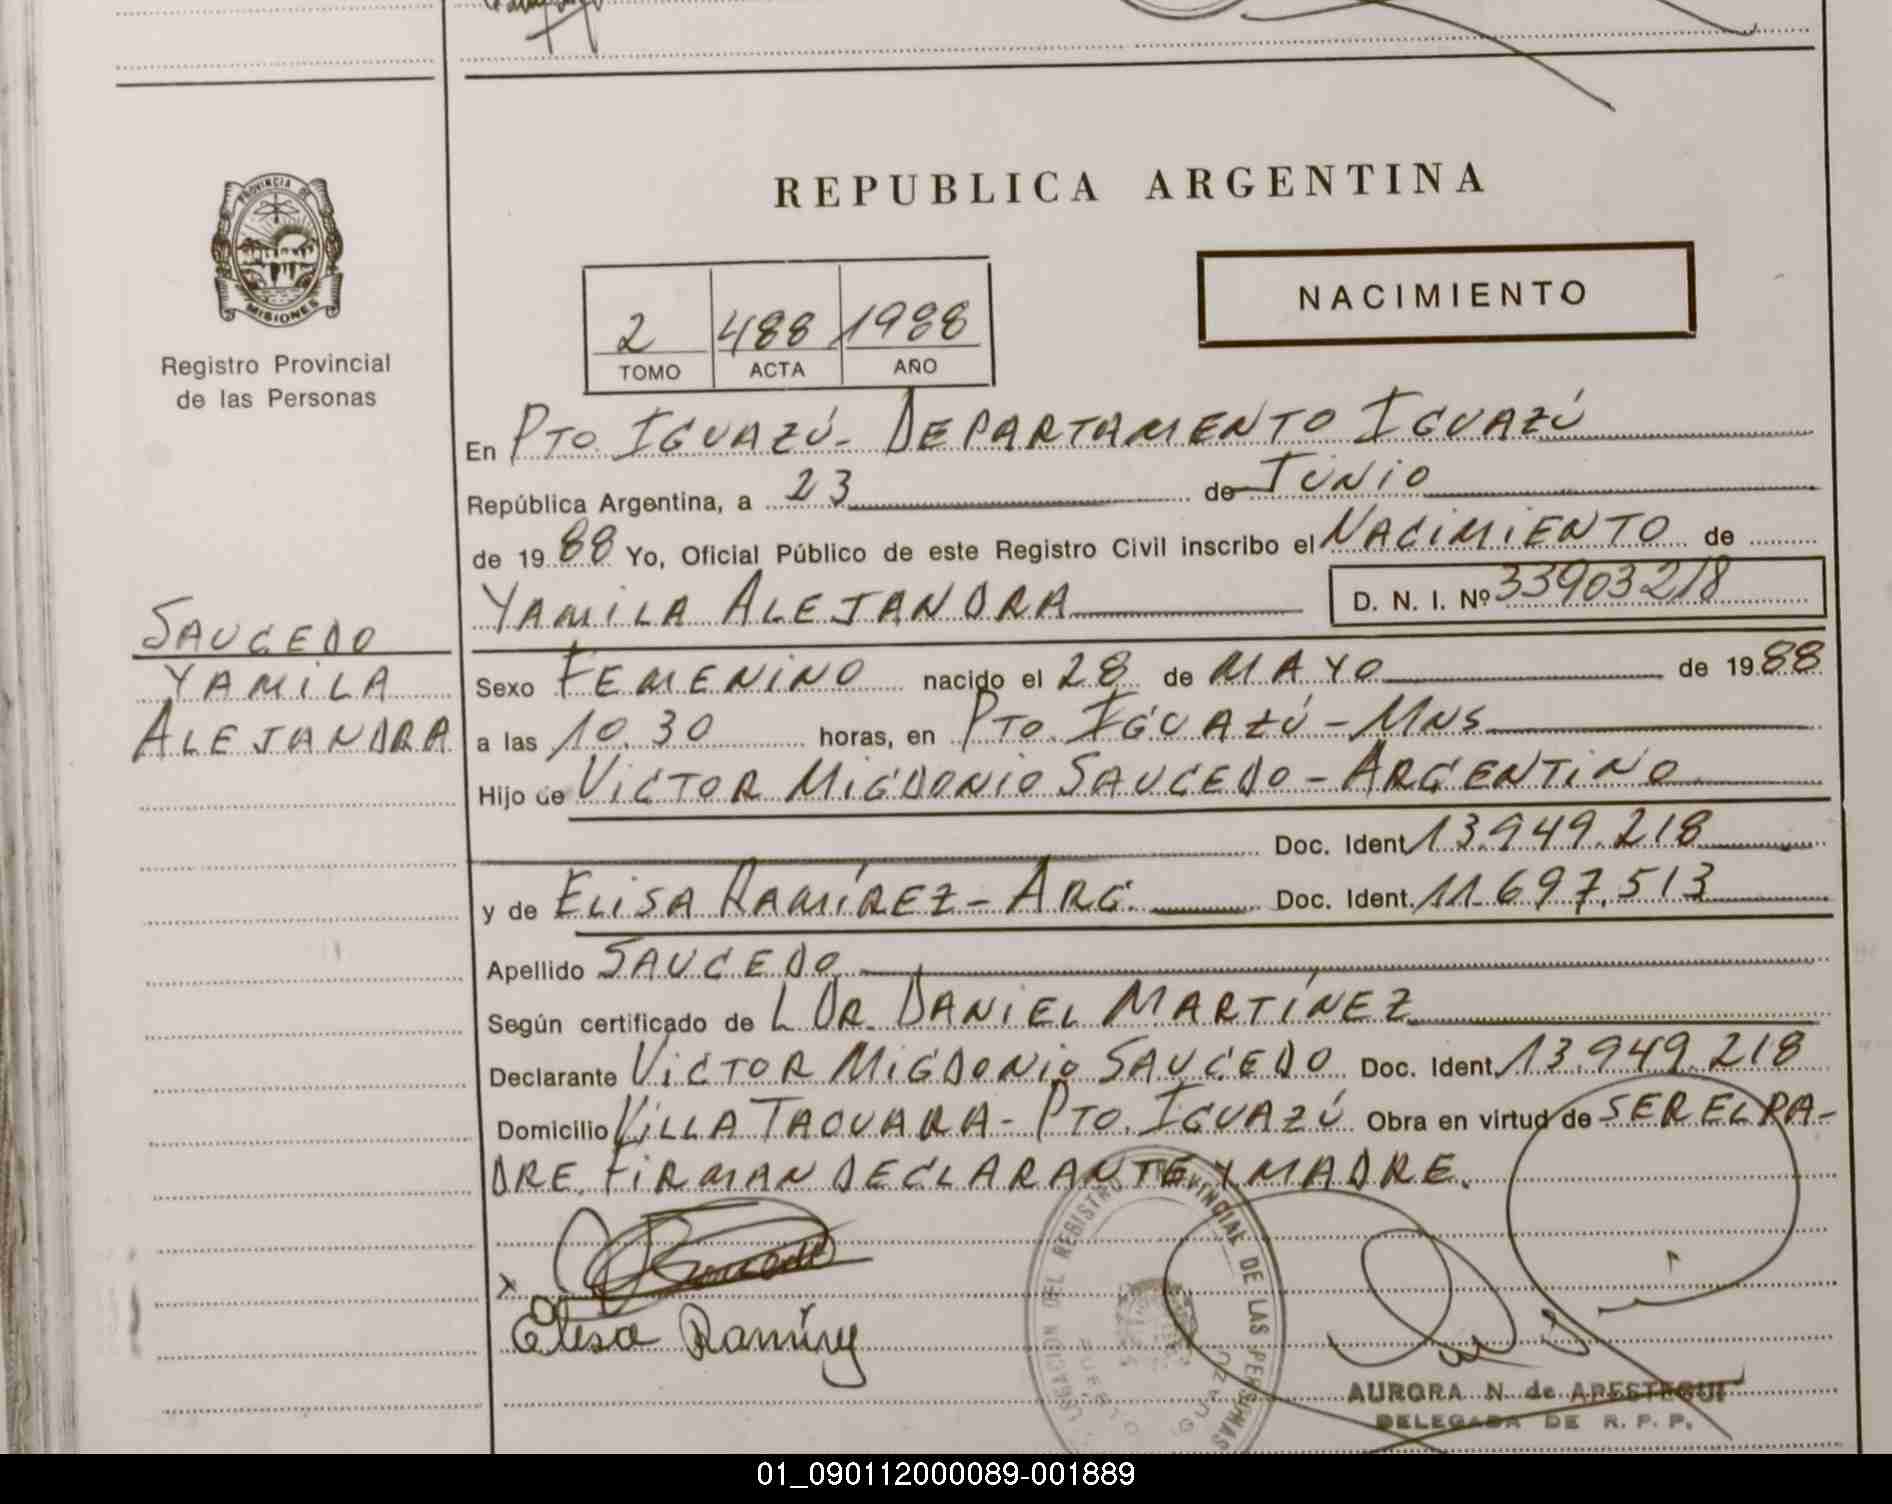 REPUBLICA ARGENTINA
PROVINCIA DE
MISIONES
Registro Provincial
de las Personas
NACIMIENTO
2 488 1988
TOMO ACTA AÑO
En PTO. IGUAZÚ - DEPARTAMENTO IGUAZÚ
República Argentina, a 23 de JUNIO
de 1988 Yo, Oficial Público de este Registro Civil inscribo el NACIMIENTO de
YAMILA ALEJANDRA D. N. I. Nº 33903218
SAUCEDO
YAMILA
ALEJANDRA
Sexo FEMENINO nacido el 28 de MAYO de 1988
a las 10.30 horas, en PTO. IGUAZÚ - MNS
Hijo de VICTOR MIGDONIO SAUCEDO - ARGENTINO
Doc. Ident. 13.949.218
y de ELISA RAMÍREZ - ARG. Doc. Ident. 11.697.513
Apellido SAUCEDO
Según certificado de L DR. DANIEL MARTÍNEZ
Declarante VICTOR MIGDONIO SAUCEDO Doc. Ident. 13.949.218
Domicilio VILLA TACUARA - PTO. IGUAZÚ Obra en virtud de SER EL PA-
DRE. FIRMAN DECLARANTE Y MADRE.
x
Elisa Ramírez
DELEGACION DEL REGISTRO PROVINCIAL DE LAS PERSONAS
PUERTO IGUAZU
AURORA N. de APESTEGUI
DELEGADA DE R. P. P.
01_090112000089-001889